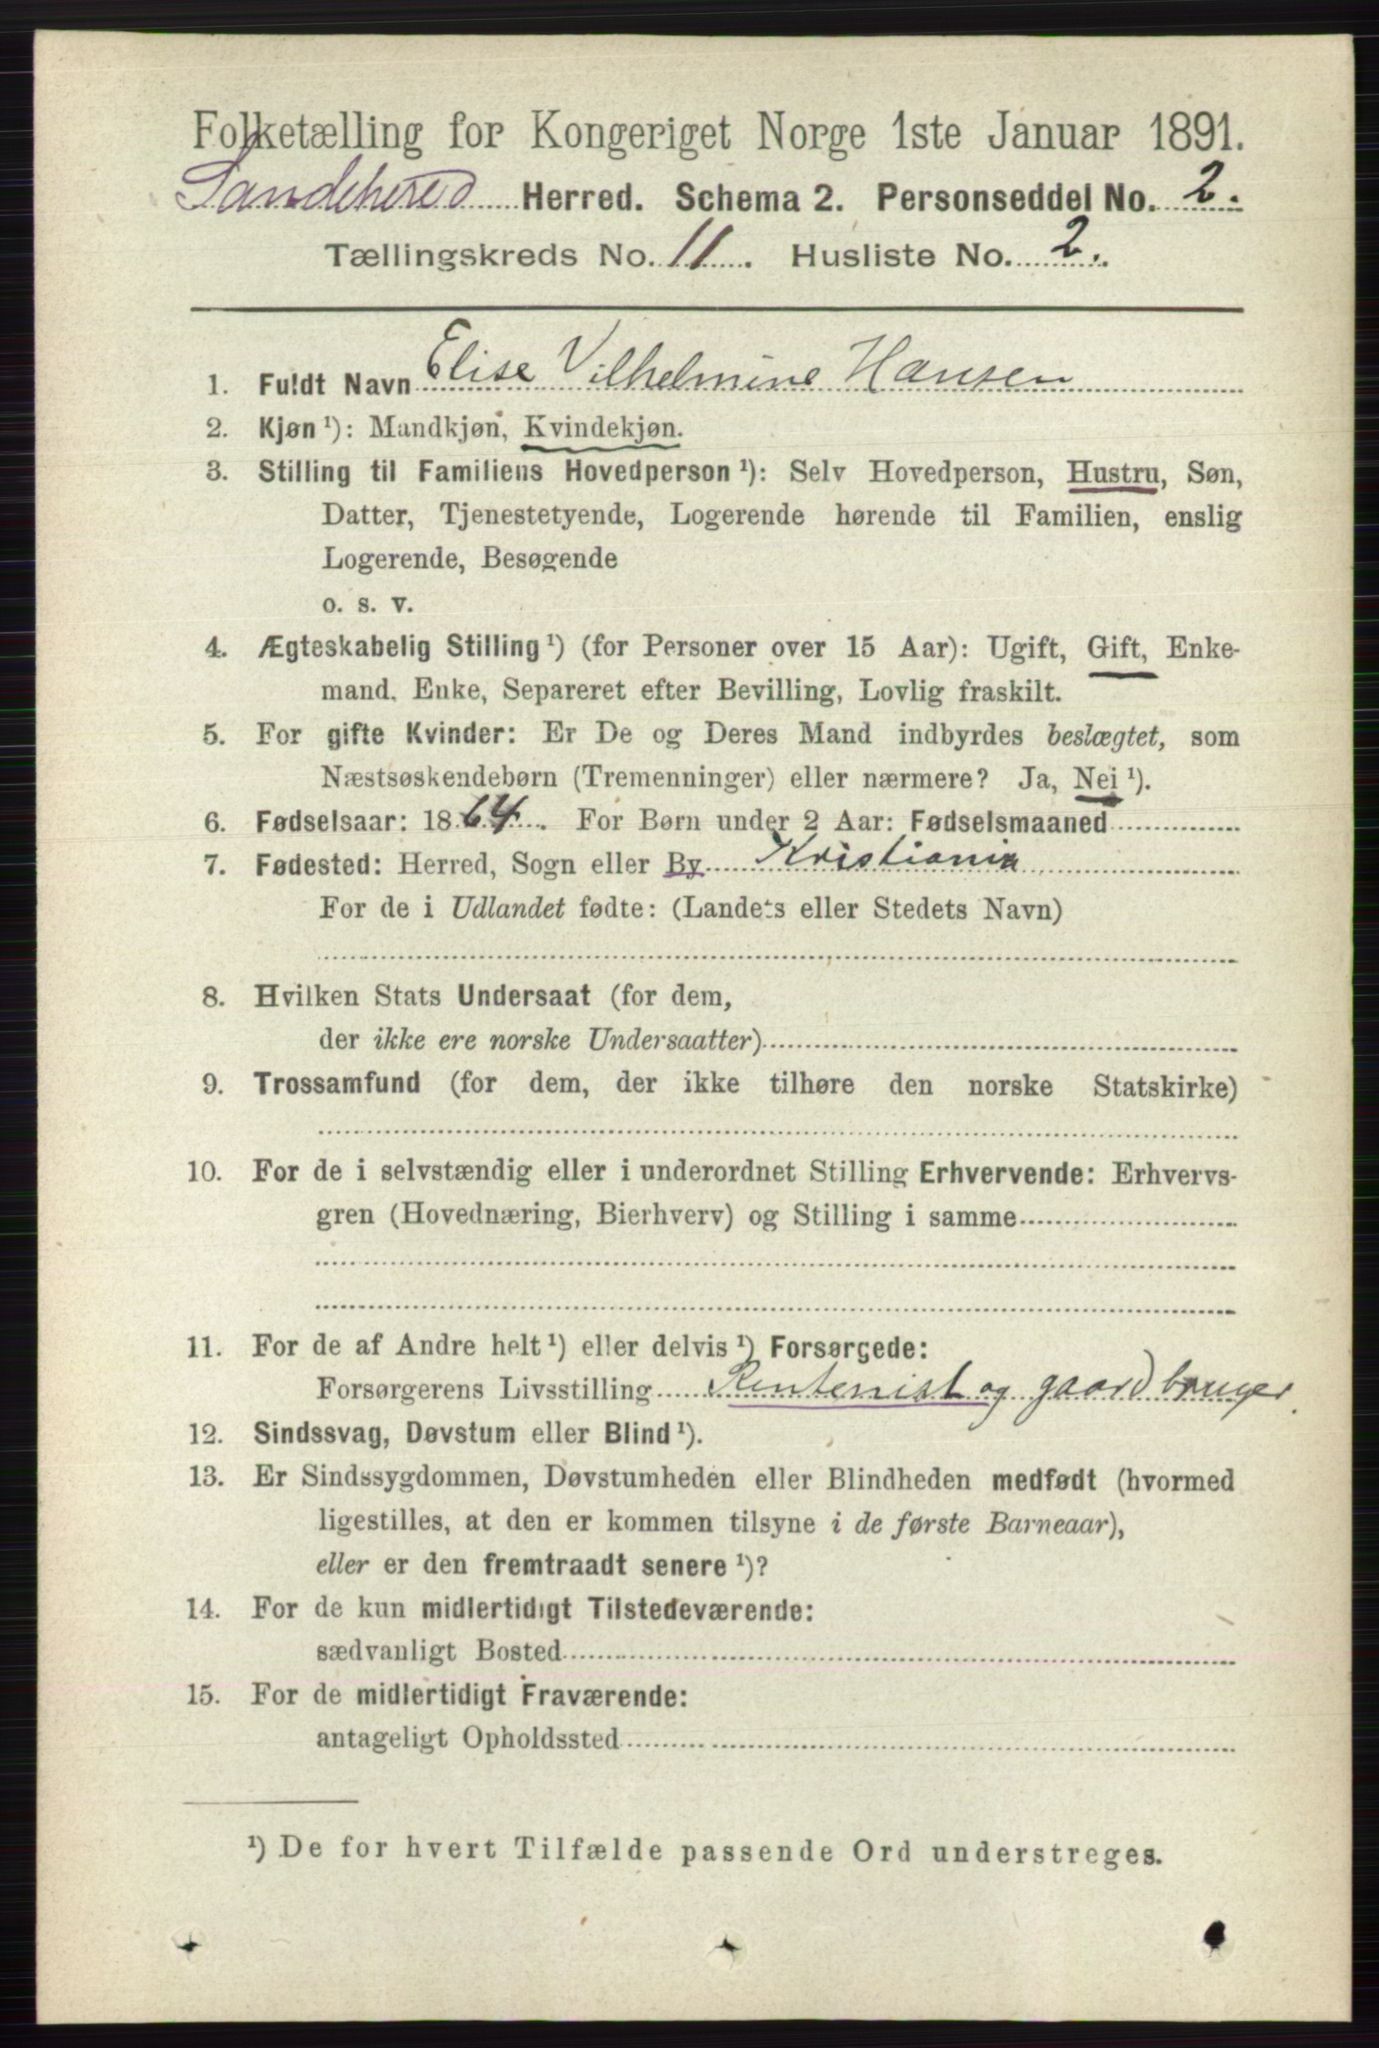 Folketælling for Kongeriget Norge 1ste Januar 1891.
Sandeherred Herred. Schema 2. Personseddel No. 2.
Tællingskreds No. 11. Husliste No. 2.
1. Fuldt Navn Elise Vilhelmine Hansen
2. Kjøn ¹): Mandkjøn, Kvindekjøn.
3. Stilling til Familiens Hovedperson ¹): Selv Hovedperson, Hustru, Søn,
Datter, Tjenestetyende, Logerende hørende til Familien, enslig
Logerende, Besøgende
o. s. v.
4. Ægteskabelig Stilling ¹) (for Personer over 15 Aar): Ugift, Gift, Enke-
mand, Enke, Separeret efter Bevilling, Lovlig fraskilt.
5. For gifte Kvinder: Er De og Deres Mand indbyrdes beslægtet, som
Næstsøskendebørn (Tremenninger) eller nærmere? Ja, Nei ¹).
6. Fødselsaar: 1864. For Børn under 2 Aar: Fødselsmaaned
7. Fødested: Herred, Sogn eller By Kristiania
For de i Udlandet fødte: (Landets eller Stedets Navn)
8. Hvilken Stats Undersaat (for dem,
der ikke ere norske Undersaatter)
9. Trossamfund (for dem, der ikke tilhøre den norske Statskirke)
10. For de i selvstændig eller i underordnet Stilling Erhvervende: Erhvervs-
gren (Hovednæring, Bierhverv) og Stilling i samme
11. For de af Andre helt ¹) eller delvis ¹) Forsørgede:
Forsørgerens Livsstilling Rentenist og gaardbruger.
12. Sindssvag, Døvstum eller Blind ¹).
13. Er Sindssygdommen, Døvstumheden eller Blindheden medfødt (hvormed
ligestilles, at den er kommen tilsyne i de første Barneaar),
eller er den fremtraadt senere ¹)?
14. For de kun midlertidigt Tilstedeværende:
sædvanligt Bosted
15. For de midlertidigt Fraværende:
antageligt Opholdssted
¹) De for hvert Tilfælde passende Ord understreges.